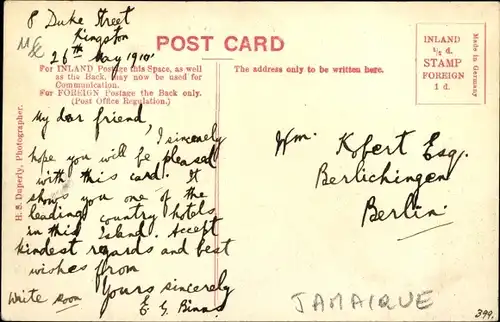 8 Duke Street
Kingston
26th May 1910
POST CARD
For INLAND Postage this Space, as well
as the Back, may now be used for
Communication.
For FOREIGN Postage the Back only.
(Post Office Regulation.)
The address only to be written here.
INLAND
½ d.
STAMP
FOREIGN
1 d.
Made in Germany
H. S. Duperly, Photographer.
My dear friend,
I sincerely
hope you will be pleased
with this card. It
shows you one of the
leading country hotels
in this Island. Accept
kindest regards and best
wishes from
Yours sincerely
E. G. Binns
Write soon
Wm. Kobert Esq.
Berlichingen
Berlin
JAMAIQUE
399.